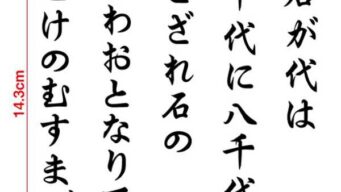 君が代は
千代に八千代
さざれ石の
わおとなり
けのむすま
14.3cm